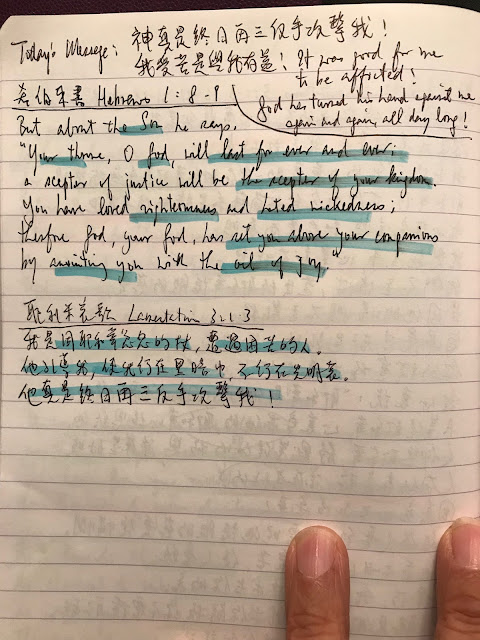 Today's Message: 神真是終日再三反手攻擊我!
我受苦是與我有益! It was good for me
to be afflicted!
God has turned his hand against me
again and again, all day long!
希伯來書 Hebrews 1:8-9
But about the Son he says,
"Your throne, O God, will last for ever and ever;
a scepter of justice will be the scepter of your kingdom.
You have loved righteousness and hated wickedness;
therefore God, your God, has set you above your companions
by anointing you with the oil of joy."
耶利米哀歌 Lamentation 3:1-3
我是因耶和華忿怒的杖,遭遇困苦的人。
他引導我,使我行在黑暗中,不行在光明裏。
他真是終日再三反手攻擊我!